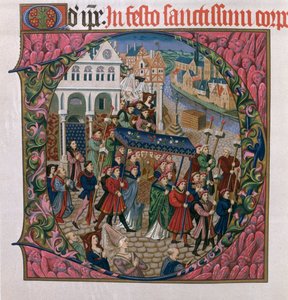 In festo sanctissimi corp